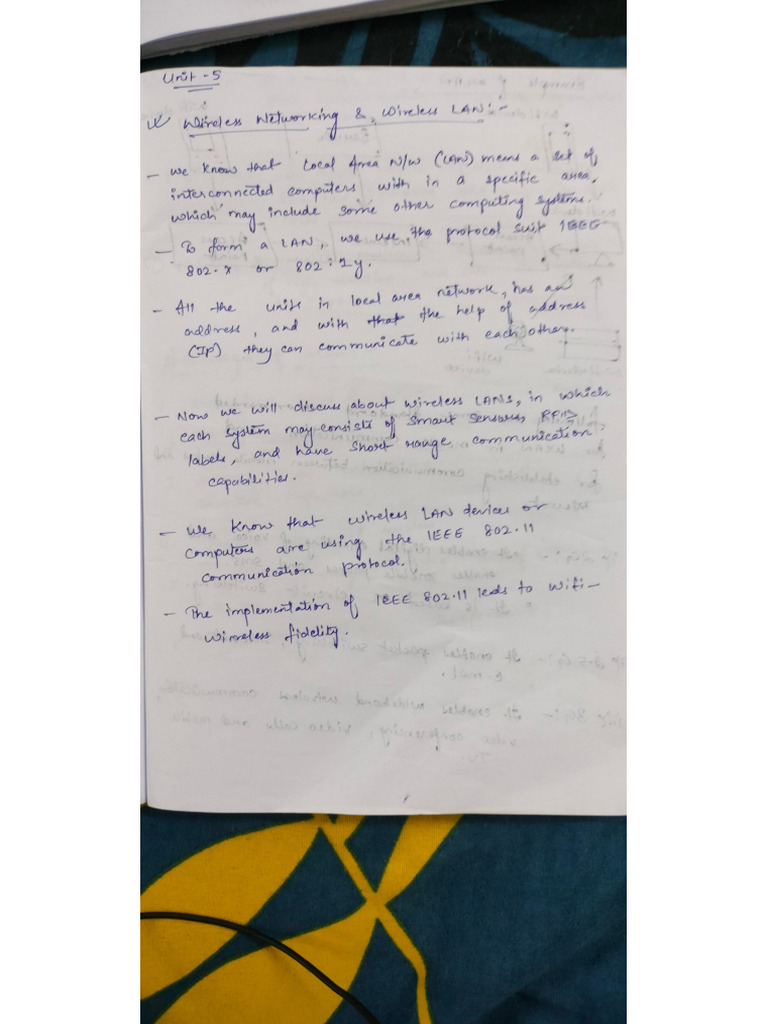 Unit - 5
Wireless Networking & Wireless LAN :-
- We know that Local Area N/w (LAN) means a set of
interconnected computers with in a specific area,
which may include some other computing systems.
- To form a LAN, we use the protocol suit IEEE
802.x or 802.1y.
- All the units in local area network, has an
address, and with that the help of address
(IP) they can communicate with each other.
- Now we will discuss about wireless LANs, in which
each system may consists of smart sensors, RFID
labels, and have short range communication
capabilities.
- We know that wireless LAN devices or
computers are using the IEEE 802.11
communication protocol.
- The implementation of IEEE 802.11 leads to wifi -
wireless fidelity.